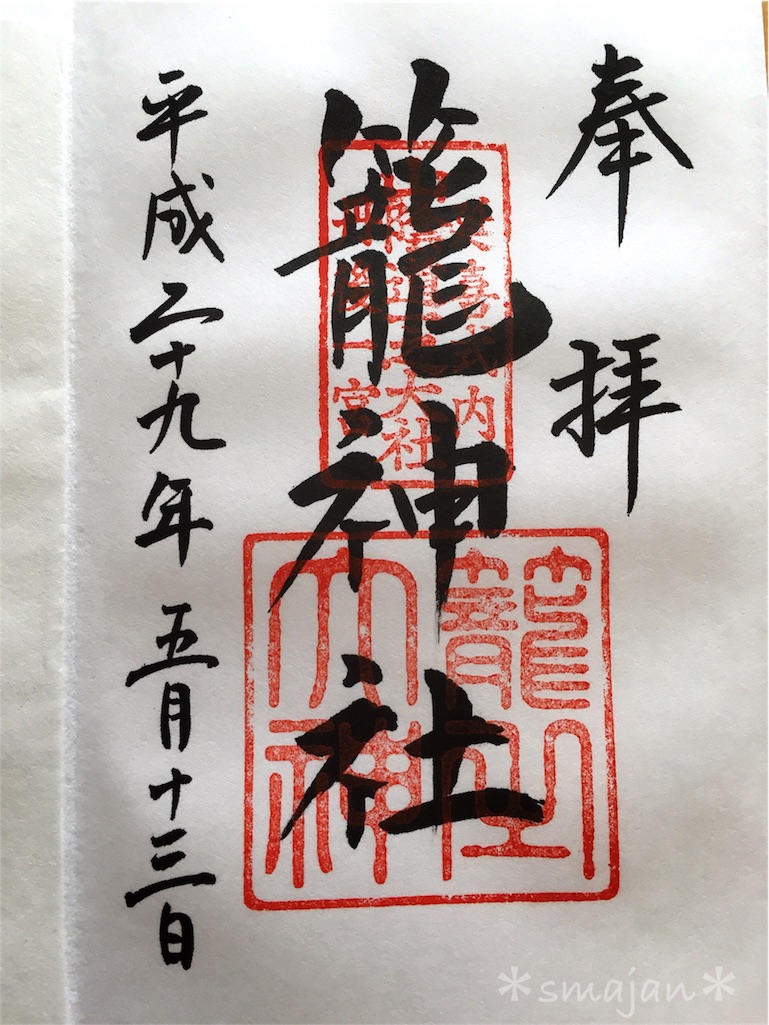 奉拝
延喜式内
大社
丹後一宮
籠神社
籠之
大神
平成二十九年五月十三日
*smajan*